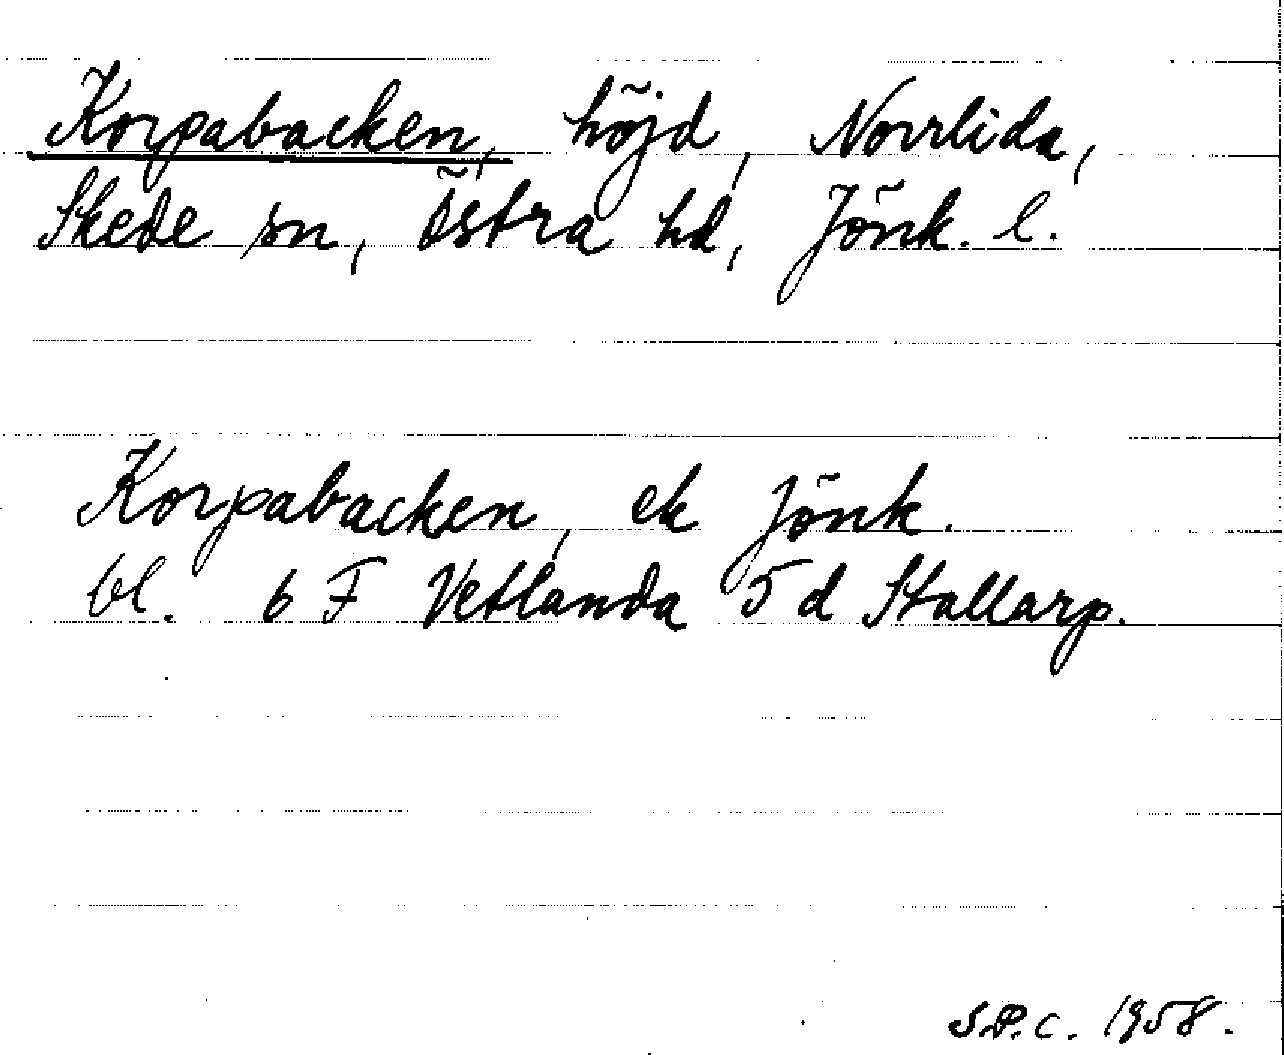 Korpabacken, höjd, Norrlida,
Skede sn, Östra hd, Jönk. l.
Korpabacken, ek Jönk.
bl. 6 F Vetlanda 5 d Stallarp.
S.P.C. 1958.